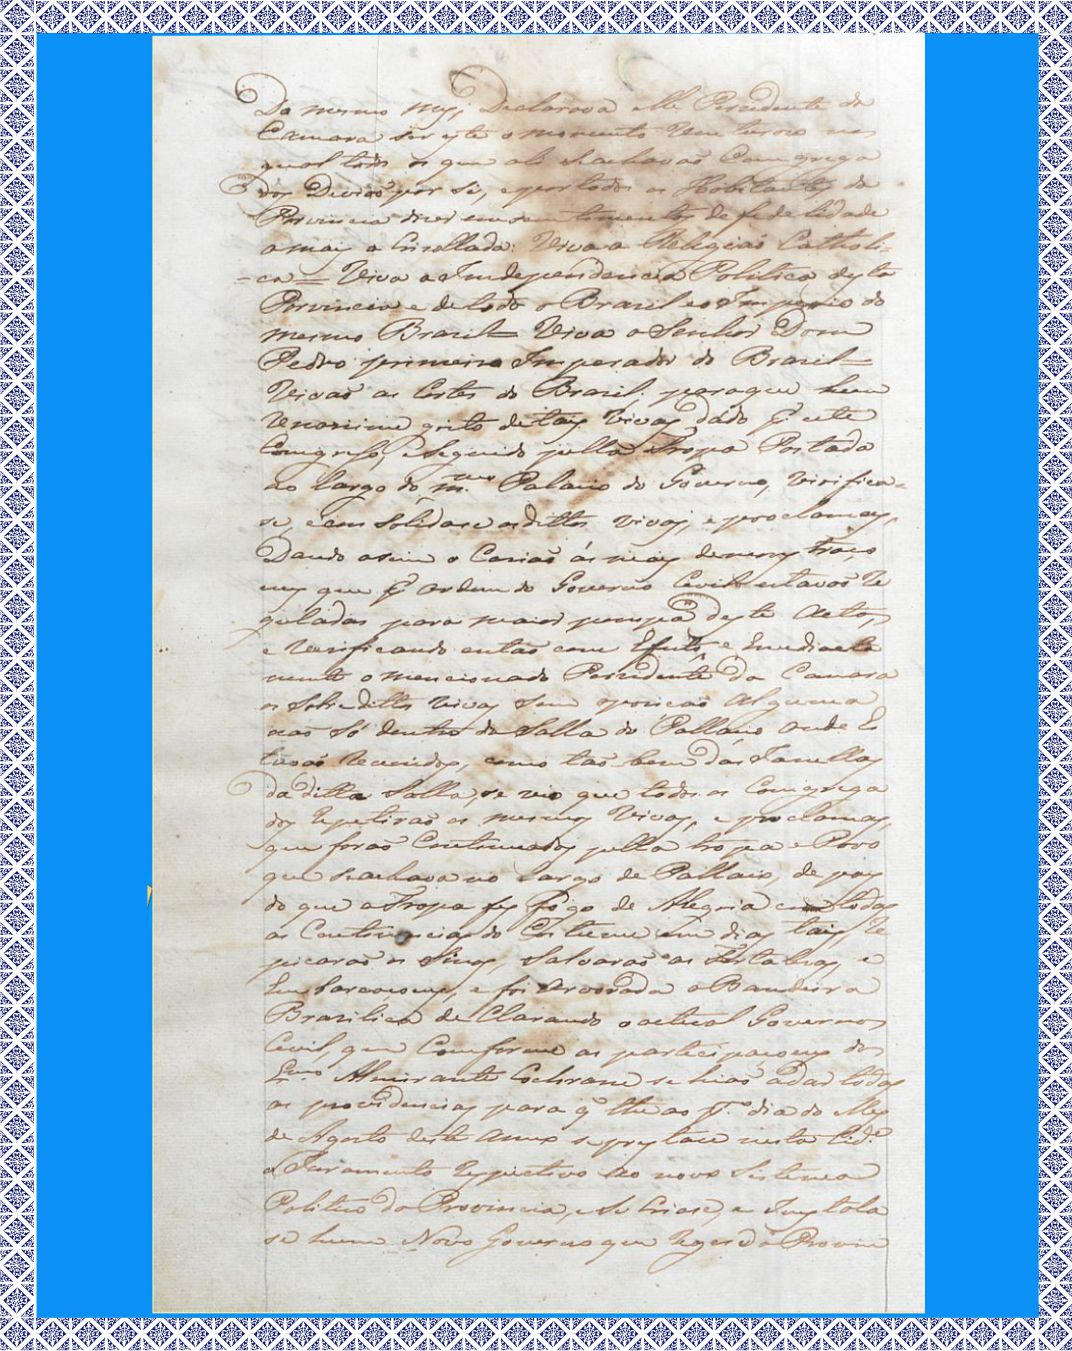 Do mesmo mez; Declarava elle Prezidente da
Camara ser este o momento Venturozo no
qual todos os que ali se achavaõ Congrega
dos Deviaõ por si, e por todos os Habitantes da
Provincia dos sentimentos de fidelidade
a mais a Crisollada: Viva a Relegiaõ Catholi-
=ca = Viva a Independencia Politica desta
Provincia e de todo o Brazil e o Imperio do
mesmo Brazil = Viva o Senhor Dom
Pedro primeiro Imperador do Brazil =
Vivaõ as Cortes do Brazil, para que hum
Unanime grito de tais Vivas dado por este
Congresso, e seguido pella Tropa Postada
no Largo do m.mo Palacio do Governo, Verifica=
se, e os dittos vivas, e proclamas,
Dando assim o Canhaõ as mais demonstraço
ens que por ordem do Governo Civil estavaõ Re
guladas para maior pompa deste Acto,
e Verificando entaõ com Efeito, e Emediacta
mente o mencionado Prezidente da Camara
os sobre dittos vivas sem opoziçaõ Alguma
naõ só dentro da Salla do Pallacio onde Es
tavaõ Reunidos, como taõ bem das Janellas
da ditta Salla, se vio que todos os Congrega
dos repetiraõ os mesmos Vivas, e proclamas,
que foraõ Continuados pella tropa e Povo
que se achava no Largo de Pallacio, de pois
do que a Tropa fez fogo de Alegria com todas
as Continencias do Costume em dias tais, Re
picaraõ os Sinos, Salvaraõ as Fortalezas, e
Embarcaçoens, e foi arvorada a Bandeira
Brazilica de Clarando o actual Governo
Civil, que Comforme as participaçoens do
Exmo Almirante Cochrane se hiaõ a dar todas
as providencias para q' the ao pr.o dia do Mez
de Agosto deste Anno se prestace nesta Cid.e
o Juramento respectivo ao novo Sistema
Politico da Provincia, e se Criase, e Instala
se hum Novo Governo que Regese a Provin